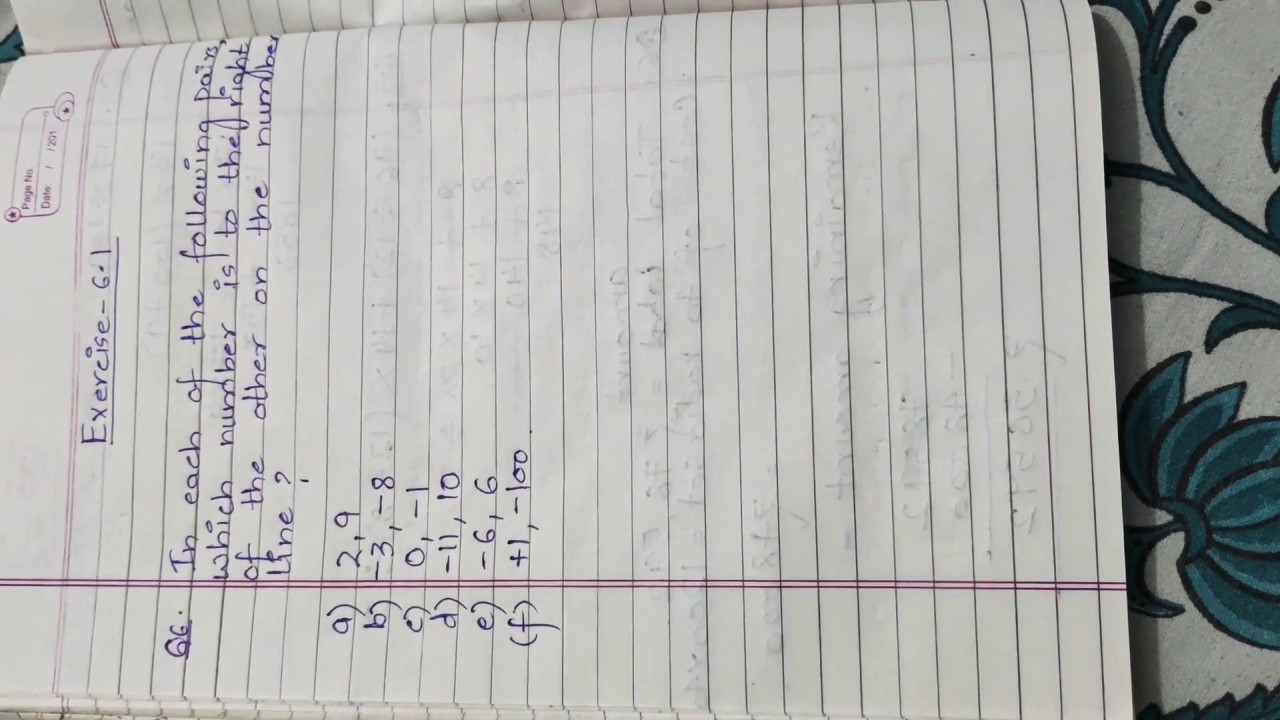 Page No.
Date: / /201
Exercise-6.1
Q6. In each of the following pairs,
which number is to the right
of the other on the number
line?
a) 2, 9
b) -3, -8
c) 0, -1
d) -11, 10
e) -6, 6
(f) +1, -100.